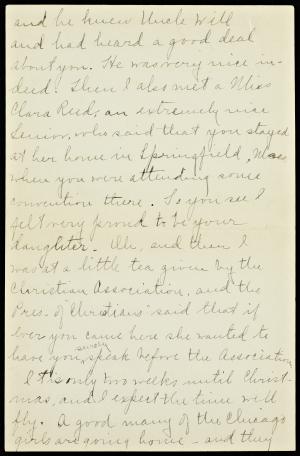 and he knew Uncle Will
and had heard a good deal
about you. He was very nice in-
deed. Then I also met a Miss
Clara Reed, an extremely nice
Senior, who said that you stayed
at her home in Springfield, Mass
when you were attending some
convention there. So you see I
felt very proud to be your
daughter. Oh, and then I
was at a little tea given by the
Christian Association, and the
Pres. of "Christians" said that if
ever you came here she wanted to
have you surely speak before the Association.
It is only two weeks until Christ-
mas, and I expect the time will
fly. A good many of the Chicago
girls are going home - and they